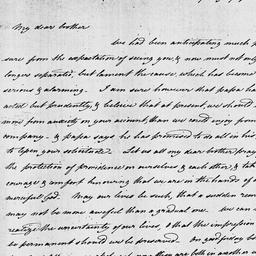 My dear brother
We had been anticipating much p
sure from the expectation of seeing you, & now must not only
longer separated, but lament the cause, which has become
serious & alarming. I am sure however that papa has
acted but prudently, & believe that at present, we should
more from anxiety on your account, than we could enjoy from
company. & papa says he has promised to do all in his
to open your substitute. Let us all my dear brother pray
the protection of providence on ourselves & each other, & tak
courage & comfort knowing that we are in the hands of a
merciful God. May our lives be such, that a sudden rem
may not be more awful than a gradual one. We can
realize the uncertainty of our lives, & that the impression
be permanent should we be preserved.
are both in another